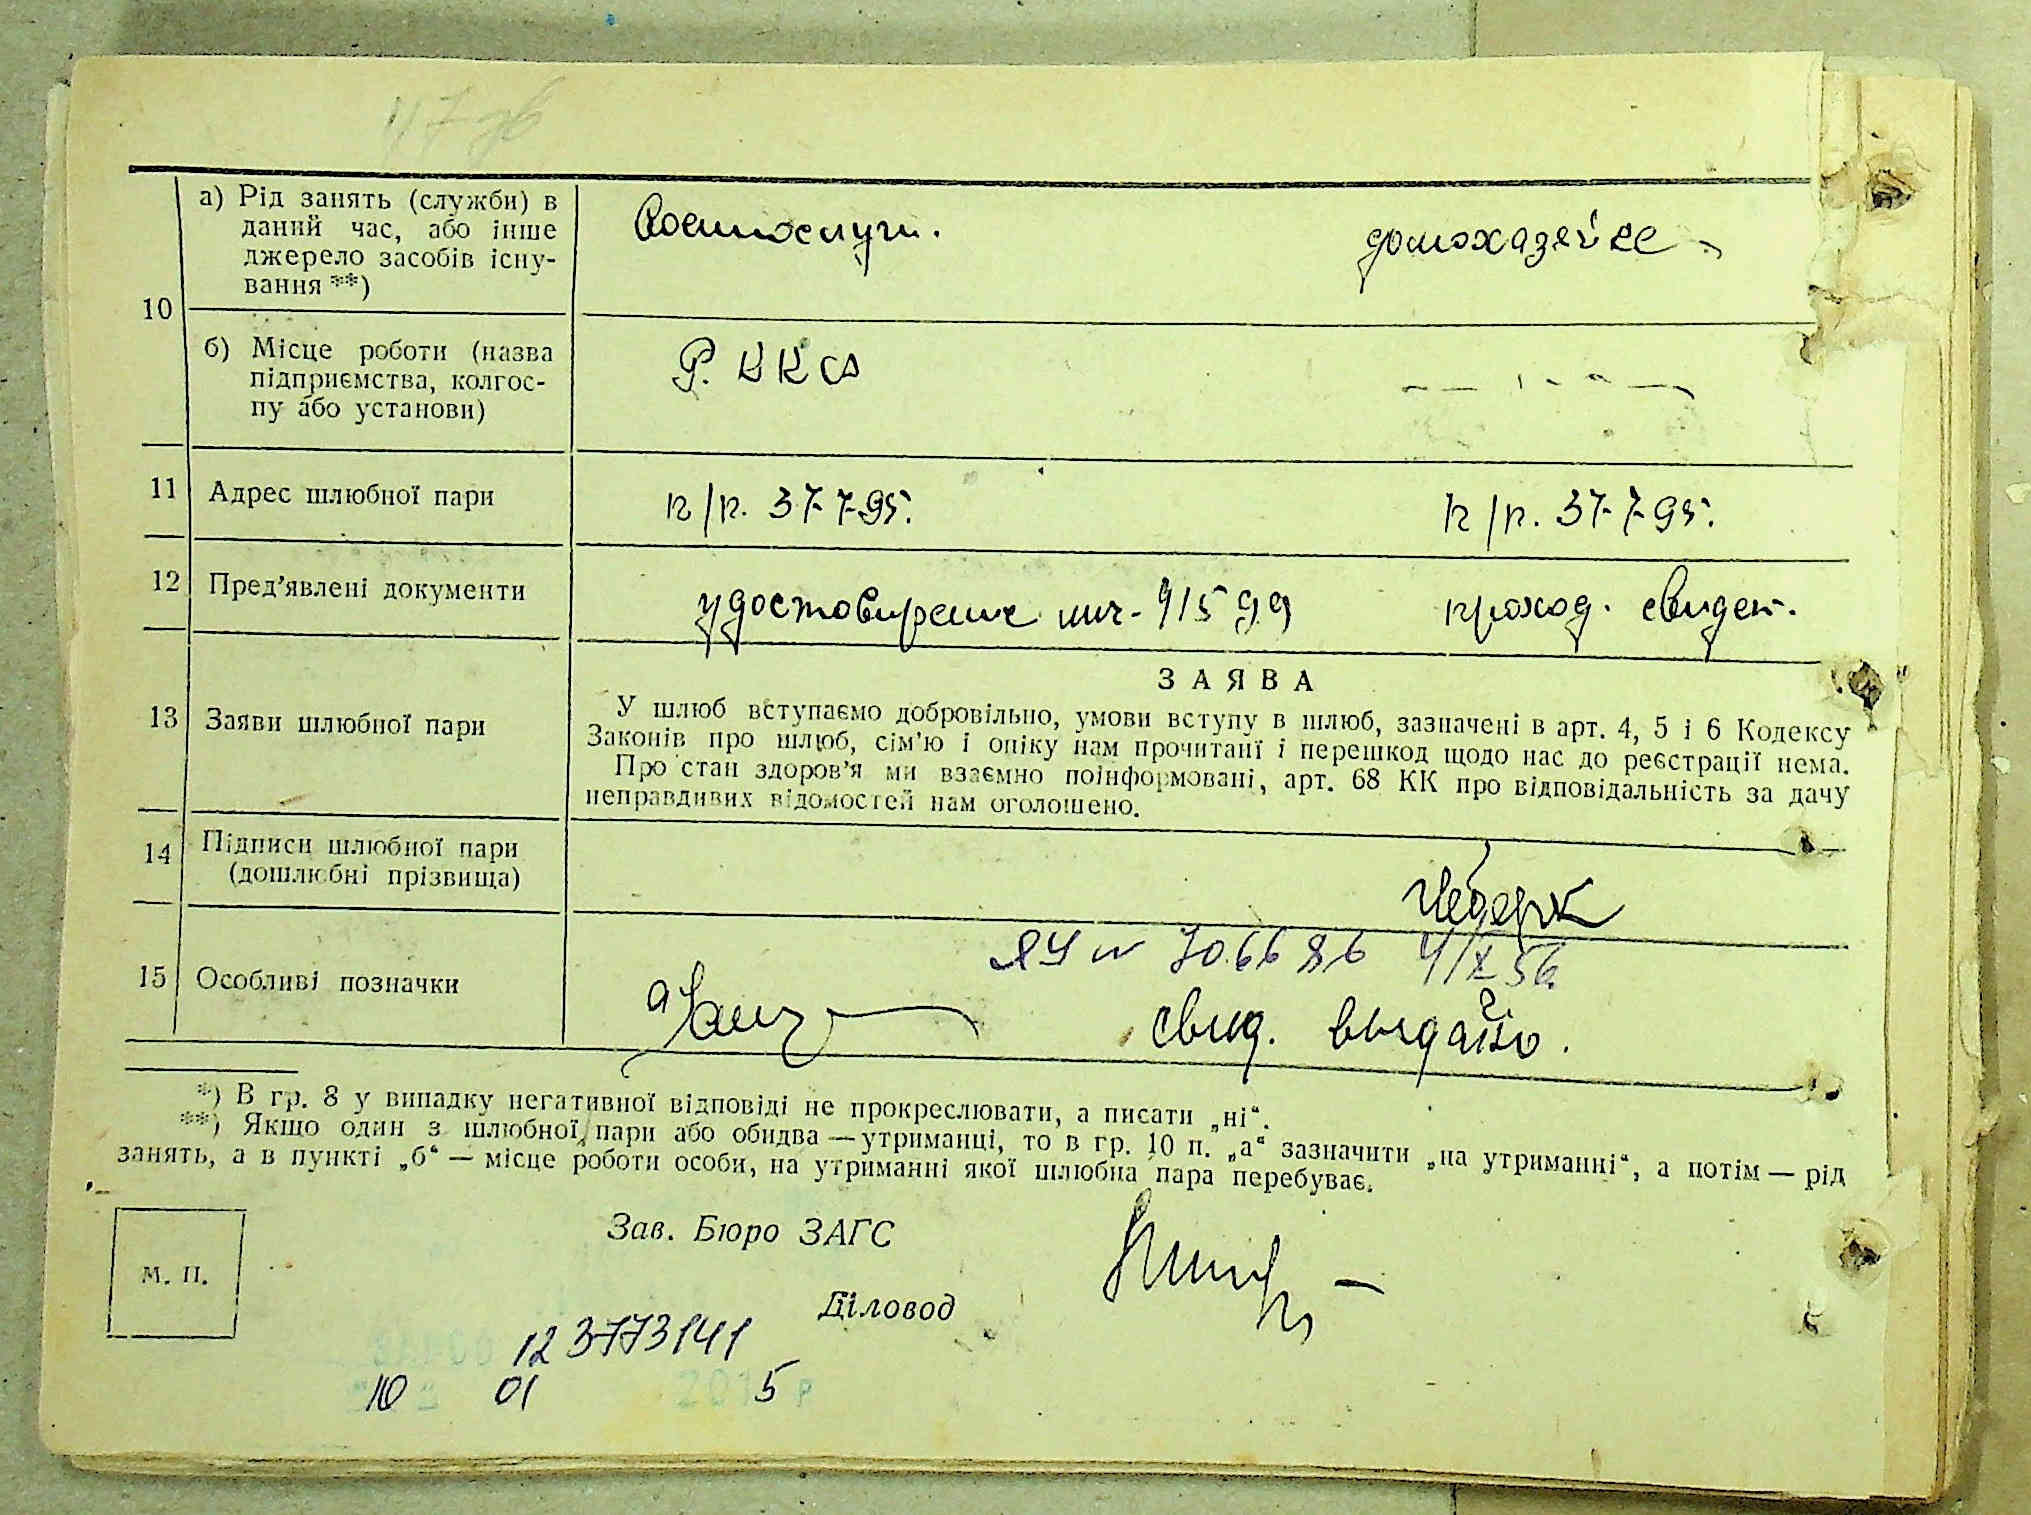 а) Рід занять (служби) в
даний час, або інше
джерело засобів існу-
вання **)
Военнослуж.
домохазяйка
10
б) Місце роботи (назва
підприємства, колгос-
пу або установи)
Р. К К А
11 Адрес шлюбної пари
п/п. 37795.
п/п. 37795.
12 Пред’явлені документи
удостовирение лич. 91599
проход. свидет.
13 Заяви шлюбної пари
ЗАЯВА
У шлюб вступаємо добровільно, умови вступу в шлюб, зазначені в арт. 4, 5 і 6 Кодексу
Законів про шлюб, сім’ю і опіку нам прочитані і перешкод щодо нас до реєстрації нема.
Про стан здоров’я ми взаємно поінформовані, арт. 68 КК про відповідальність за дачу
неправдивих відомостей нам оголошено.
14 Підписи шлюбної пари
(дошлюбні прізвища)
15 Особливі позначки
ЯУ № 706686 4/X 56.
свид. выдано.
*) В гр. 8 у випадку негативної відповіді не прокреслювати, а писати „ні“.
**) Якщо один з шлюбної пари або обидва — утриманці, то в гр. 10 п. „а“ зазначити „на утриманні“, а потім — рід
занять, а в пункті „б“ — місце роботи особи, на утриманні якої шлюбна пара перебуває.
Зав. Бюро ЗАГС
М. П.
Діловод
12 3773141
10 01 2015 р